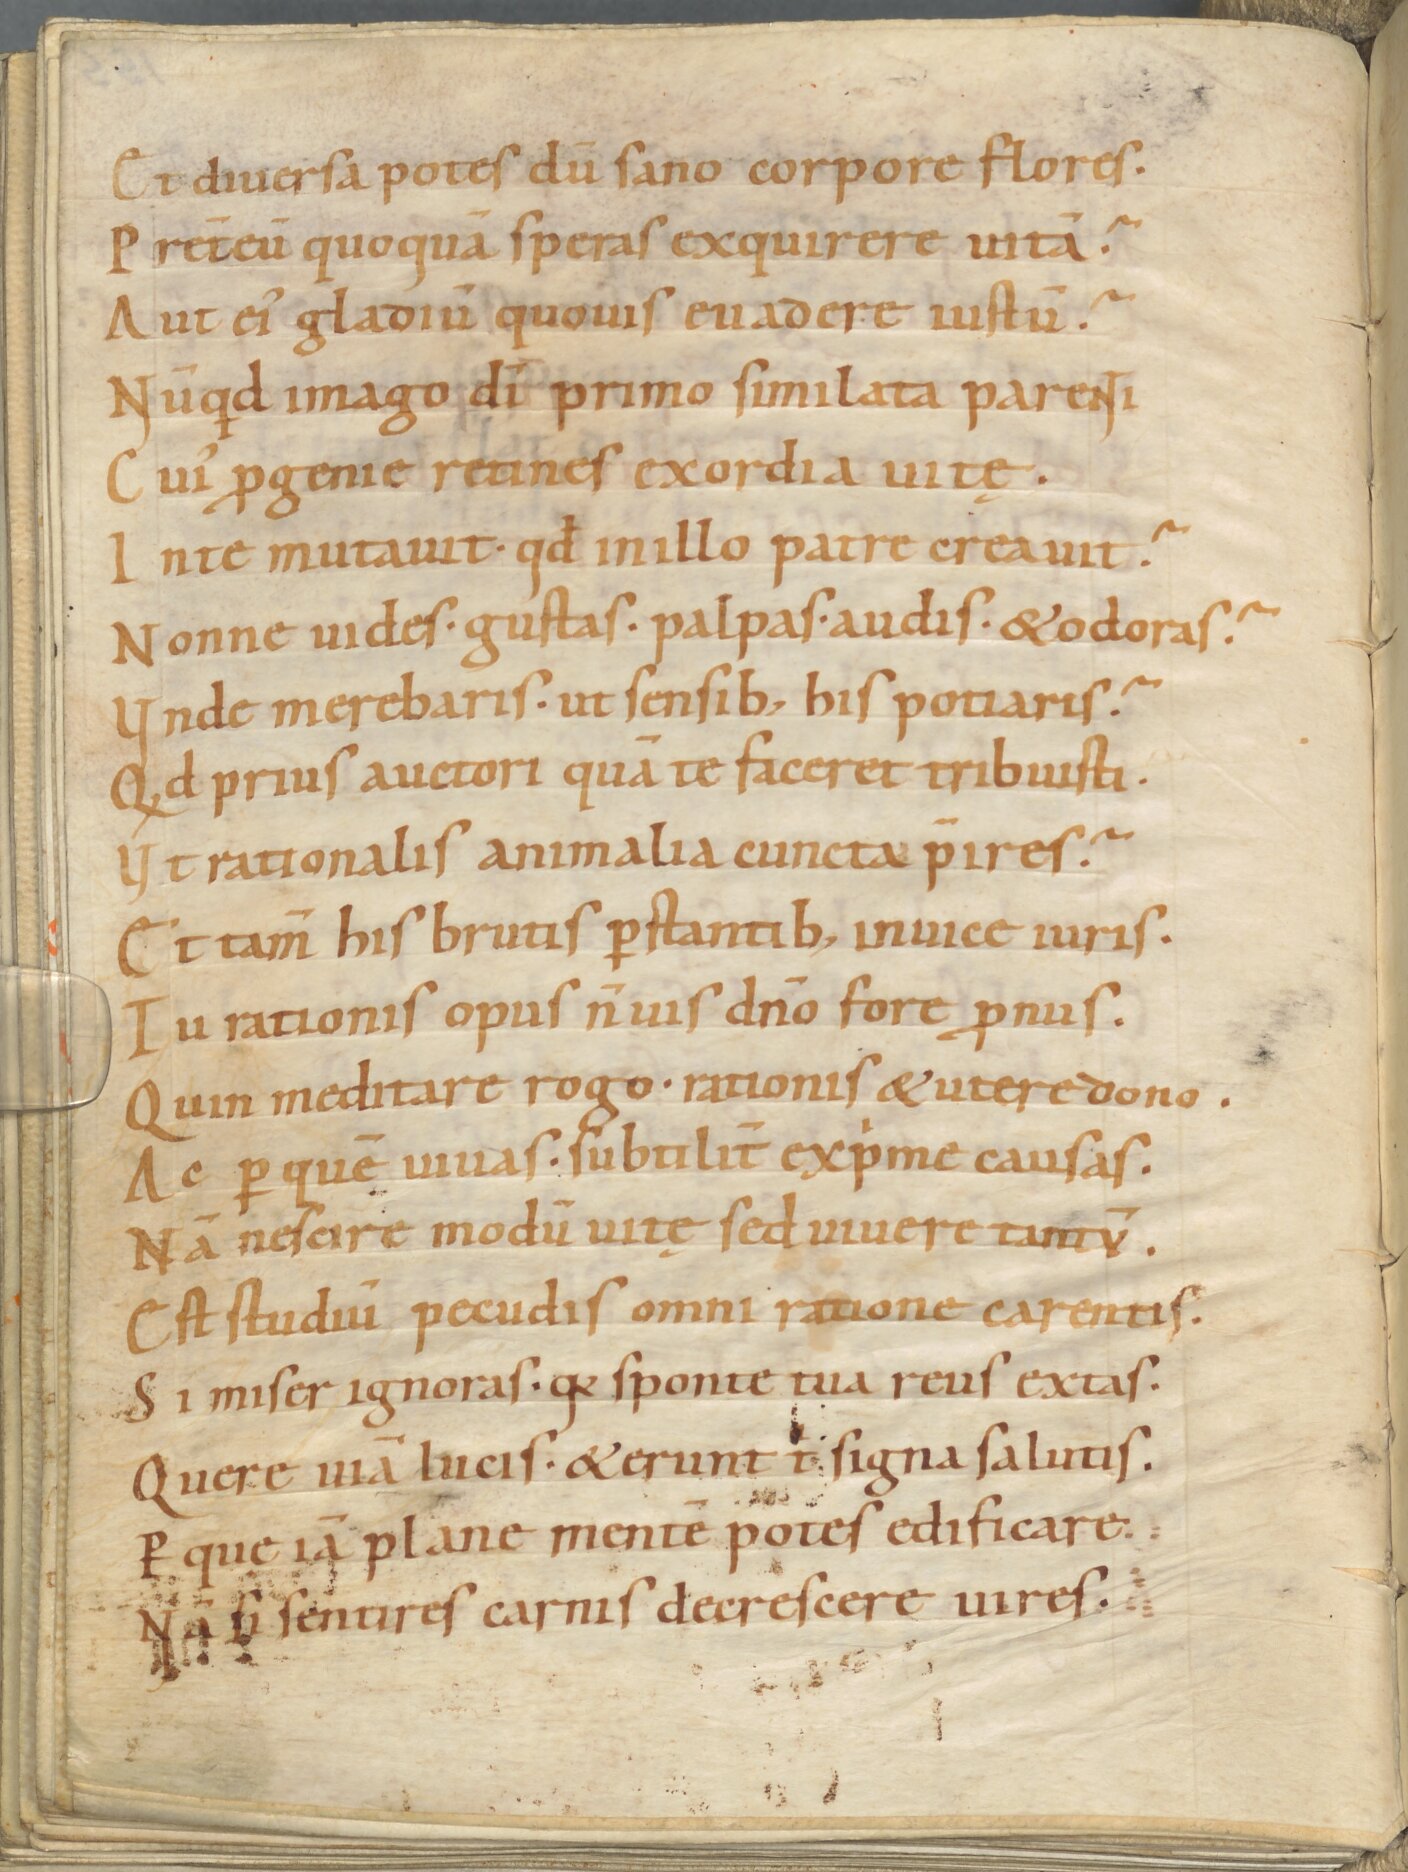 Et diuersa potes dū sano corpore flores.
P ret̄eū quoquā speras exquirere uitā.
Aut ei᾿ gladiū quouis euadere iustū.
Nūqd imago dī primo similata parenti
Cui᾿ ꝓgenie retines exordia uitę.
Inte mutauit· qđ inillo patre creauit.
Nonne uides· gustas· palpas· audis· &odoras.
Vnde merebaris· ut sensib, his potiaris.
Qd prius auctori quā te faceret tribuisti.
Vt rationalis animalia cuncta p̄ires.
Et tam̄ his brutis ꝑstantib, inuice iuris.
Tu rationis opus n̄ uis dn̄o fore ꝓnus.
Quin meditare rogo· rationis & utere dono.
Ac ꝑ quē uiuas· subtilit̄ exp̍me causas.
Nā nescire modū uitę sed uiuere tantū.
Est studiū pecudis omni ratione carentis.
Si miser ignoras· qꝛ sponte tua reus extas.
Quere uiā lucis· &erunt t̍ signa salutis.
Ꝑ que iā plane mentē potes edificare.
Nā si sentires carnis decrescere uires.